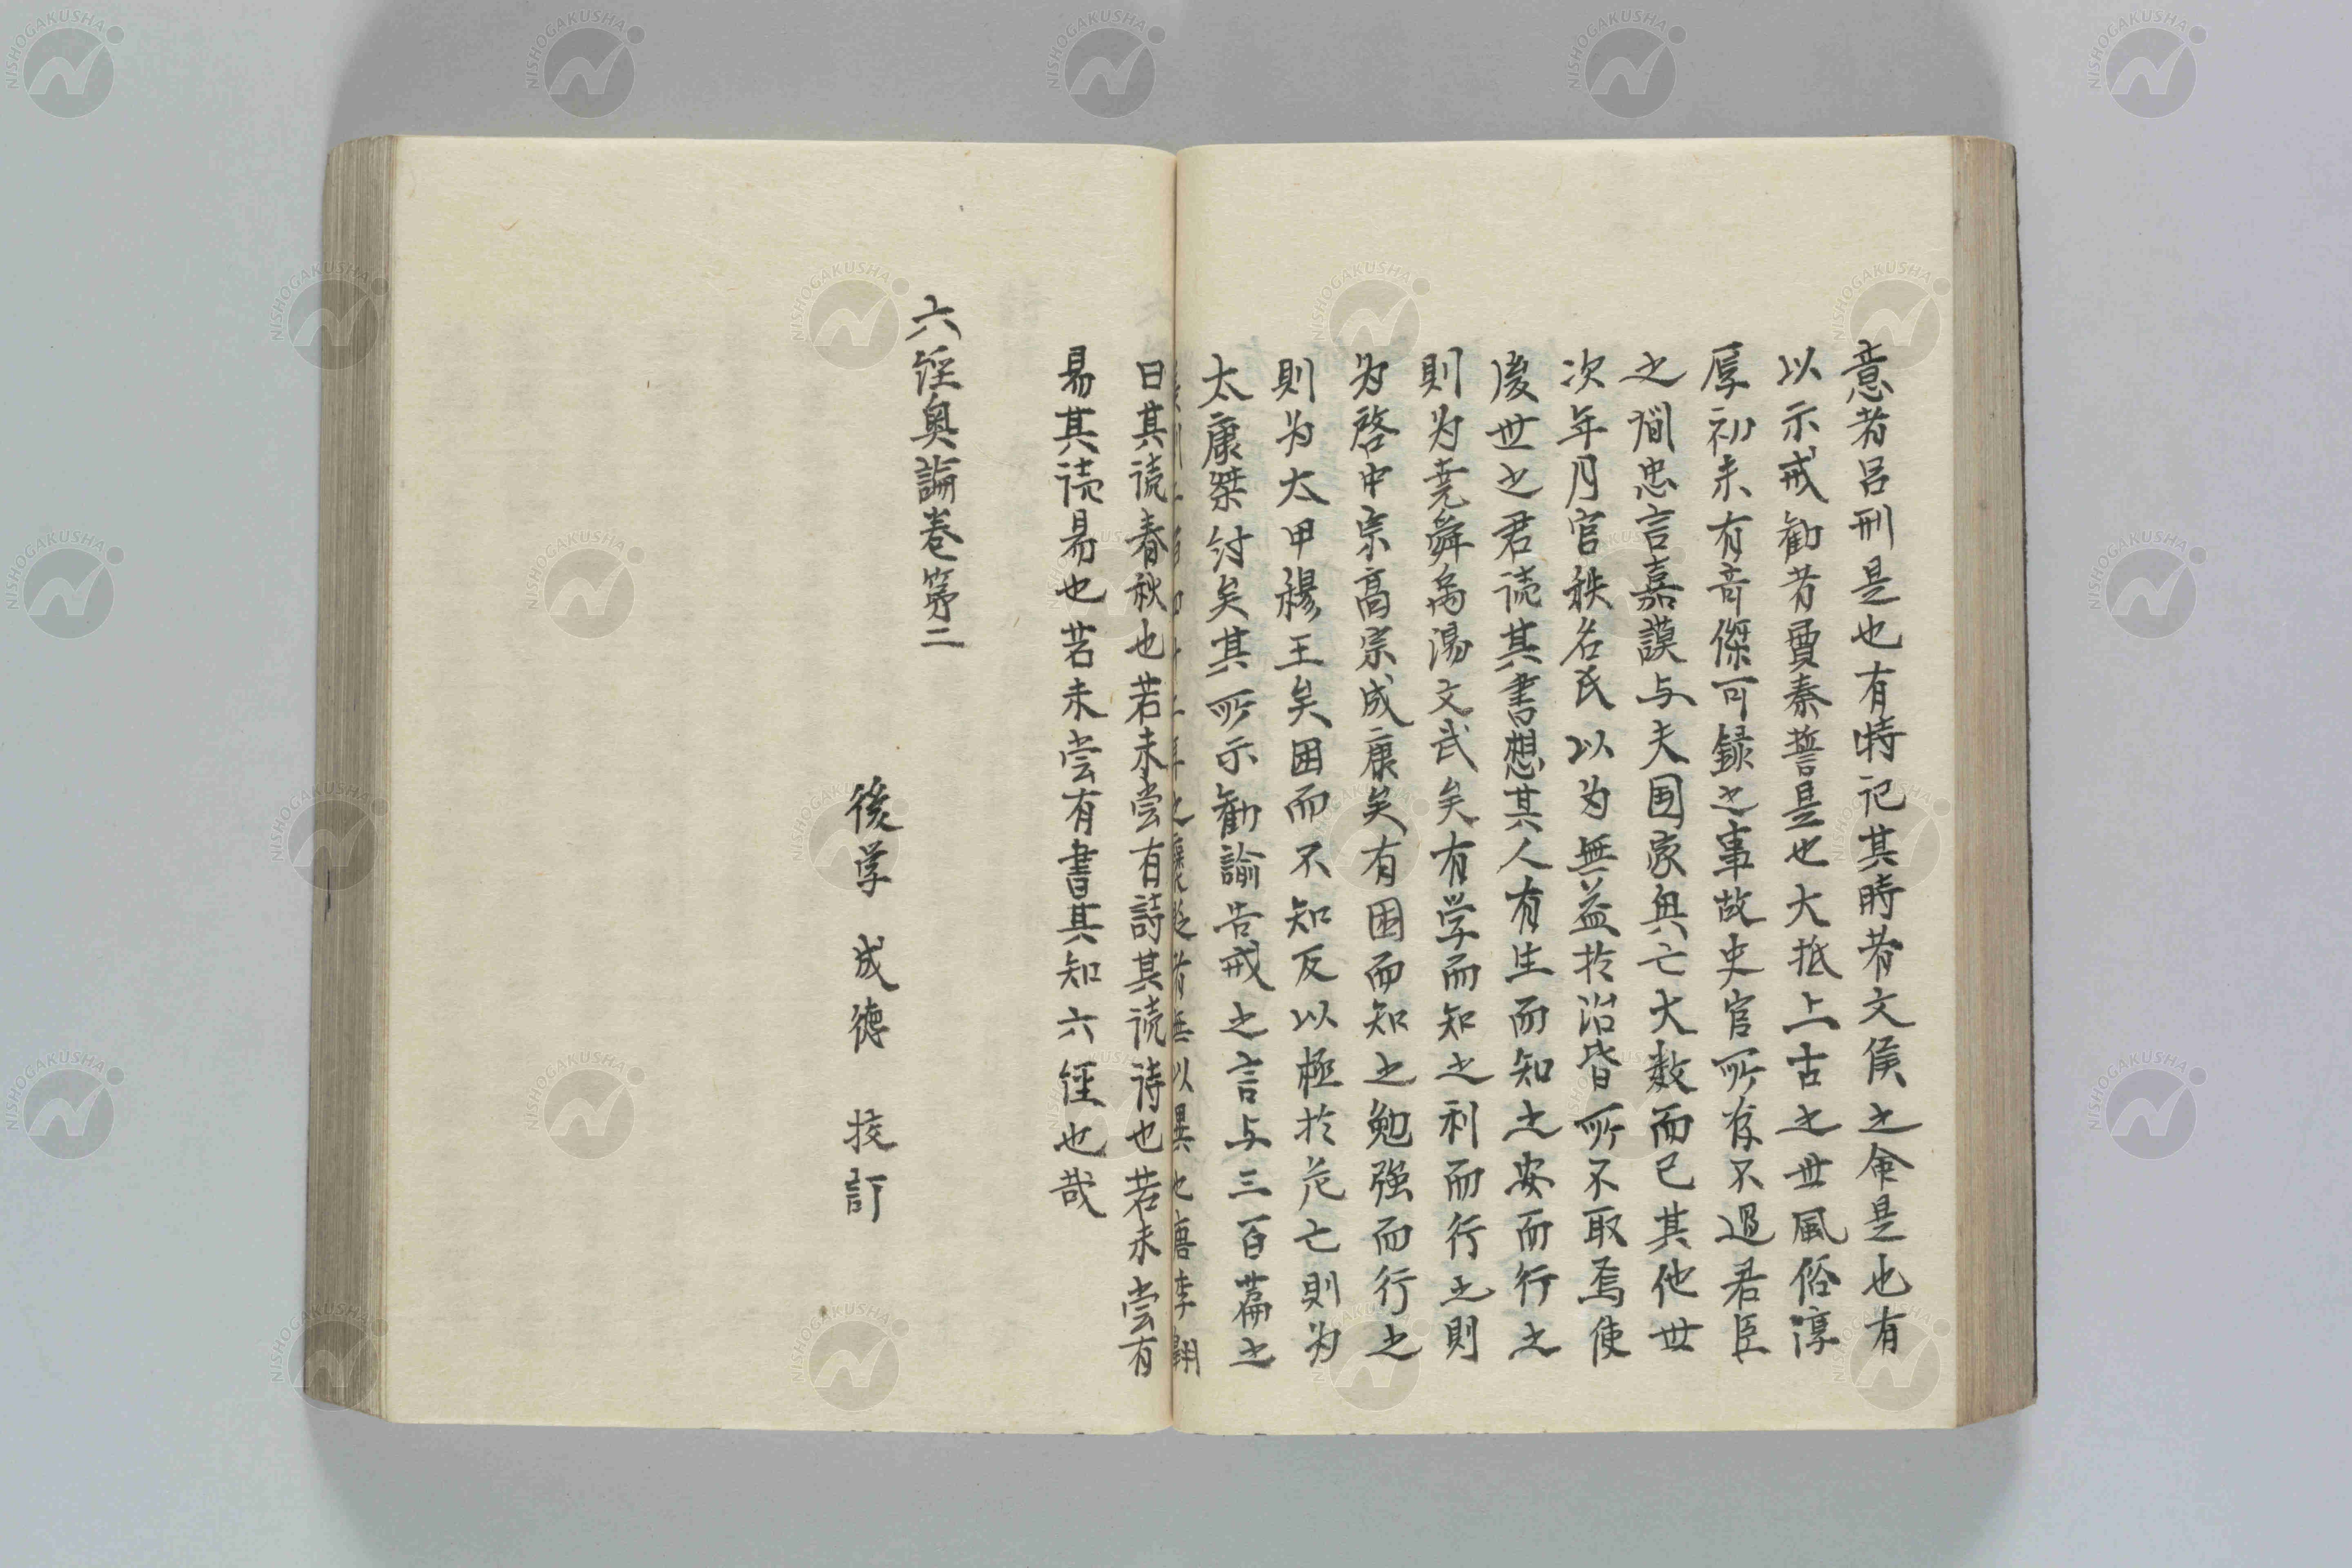 意者呂刑是也有特記其時者文侯之命是也有
以示戒勧者費秦誓是也大抵上古之世風俗淳
厚初未有奇傑可録之事故史官所存不過君臣
之間忠言嘉謨与夫国家興亡大数而已其他世
次年月官秩名氏以为無益於治皆所不取焉使
後世之君读其書想其人有生而知之安而行之
則为尭舜禹湯文武矣有学而知之利而行之則
为啓中宗高宗成康矣有困而知之勉强而行之
則为太甲穆王矣困而不知反以極於危亡則为
太康桀紂矣其所示勧諭告戒之言与三百篇之
之褒貶者無以異也唐李翺
曰其读春秋也若未尝有詩其读诗也若未尝有
易其读易也若未尝有書其知六経也哉
六経奥論巻第二
後学 成德 挍訂
NISHOGAKUSHA